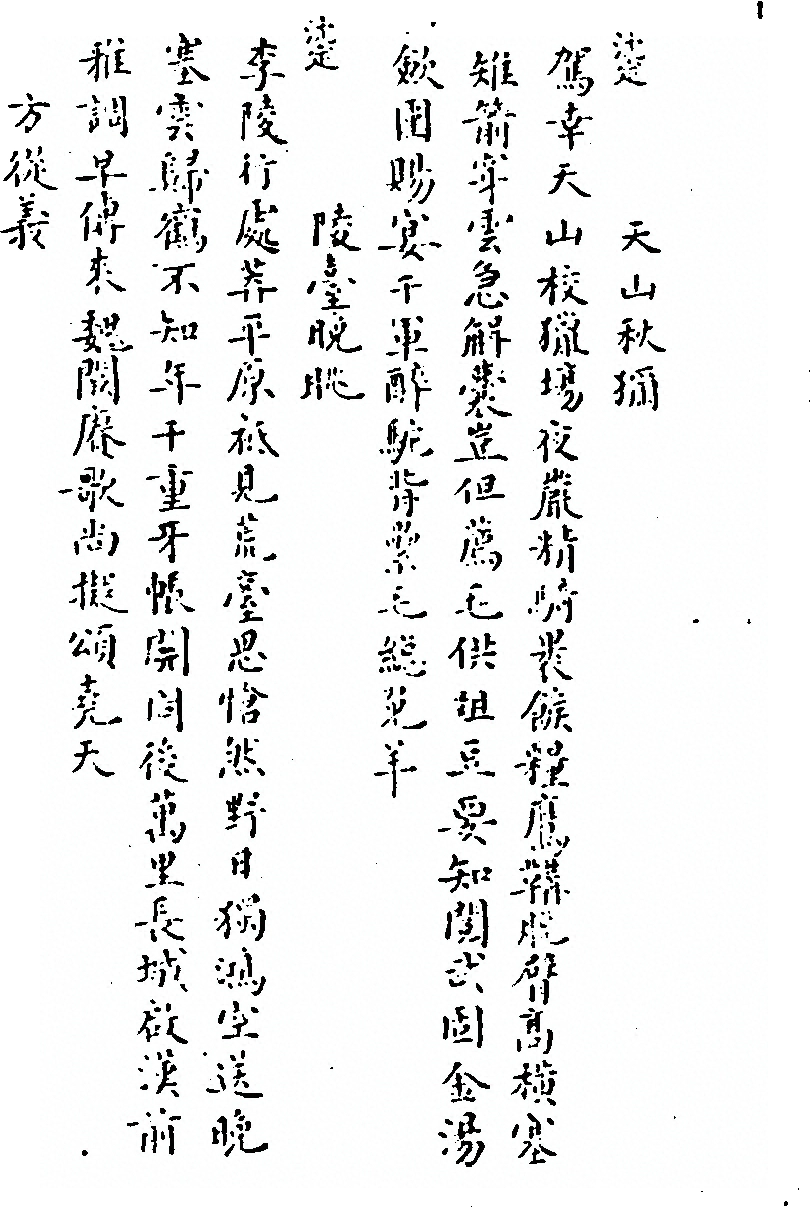 天山秋獮
駕幸天山校獵場夜嚴精騎裹餱糧鷹韝脫臂高橫塞
雉箭穿雲急解囊豈但薦毛供俎豆要知閱武固金湯
歛圍賜宴千軍醉駝背毛總羊
陵臺晚眺
李陵行處莽平原祗見荒臺思愴然野日獨鴻空送晚
塞雲歸鶴不知年千重牙帳開周後萬里長城啟漢前
雅調早傳來魏闕賡歌尚擬頌堯天
方從義